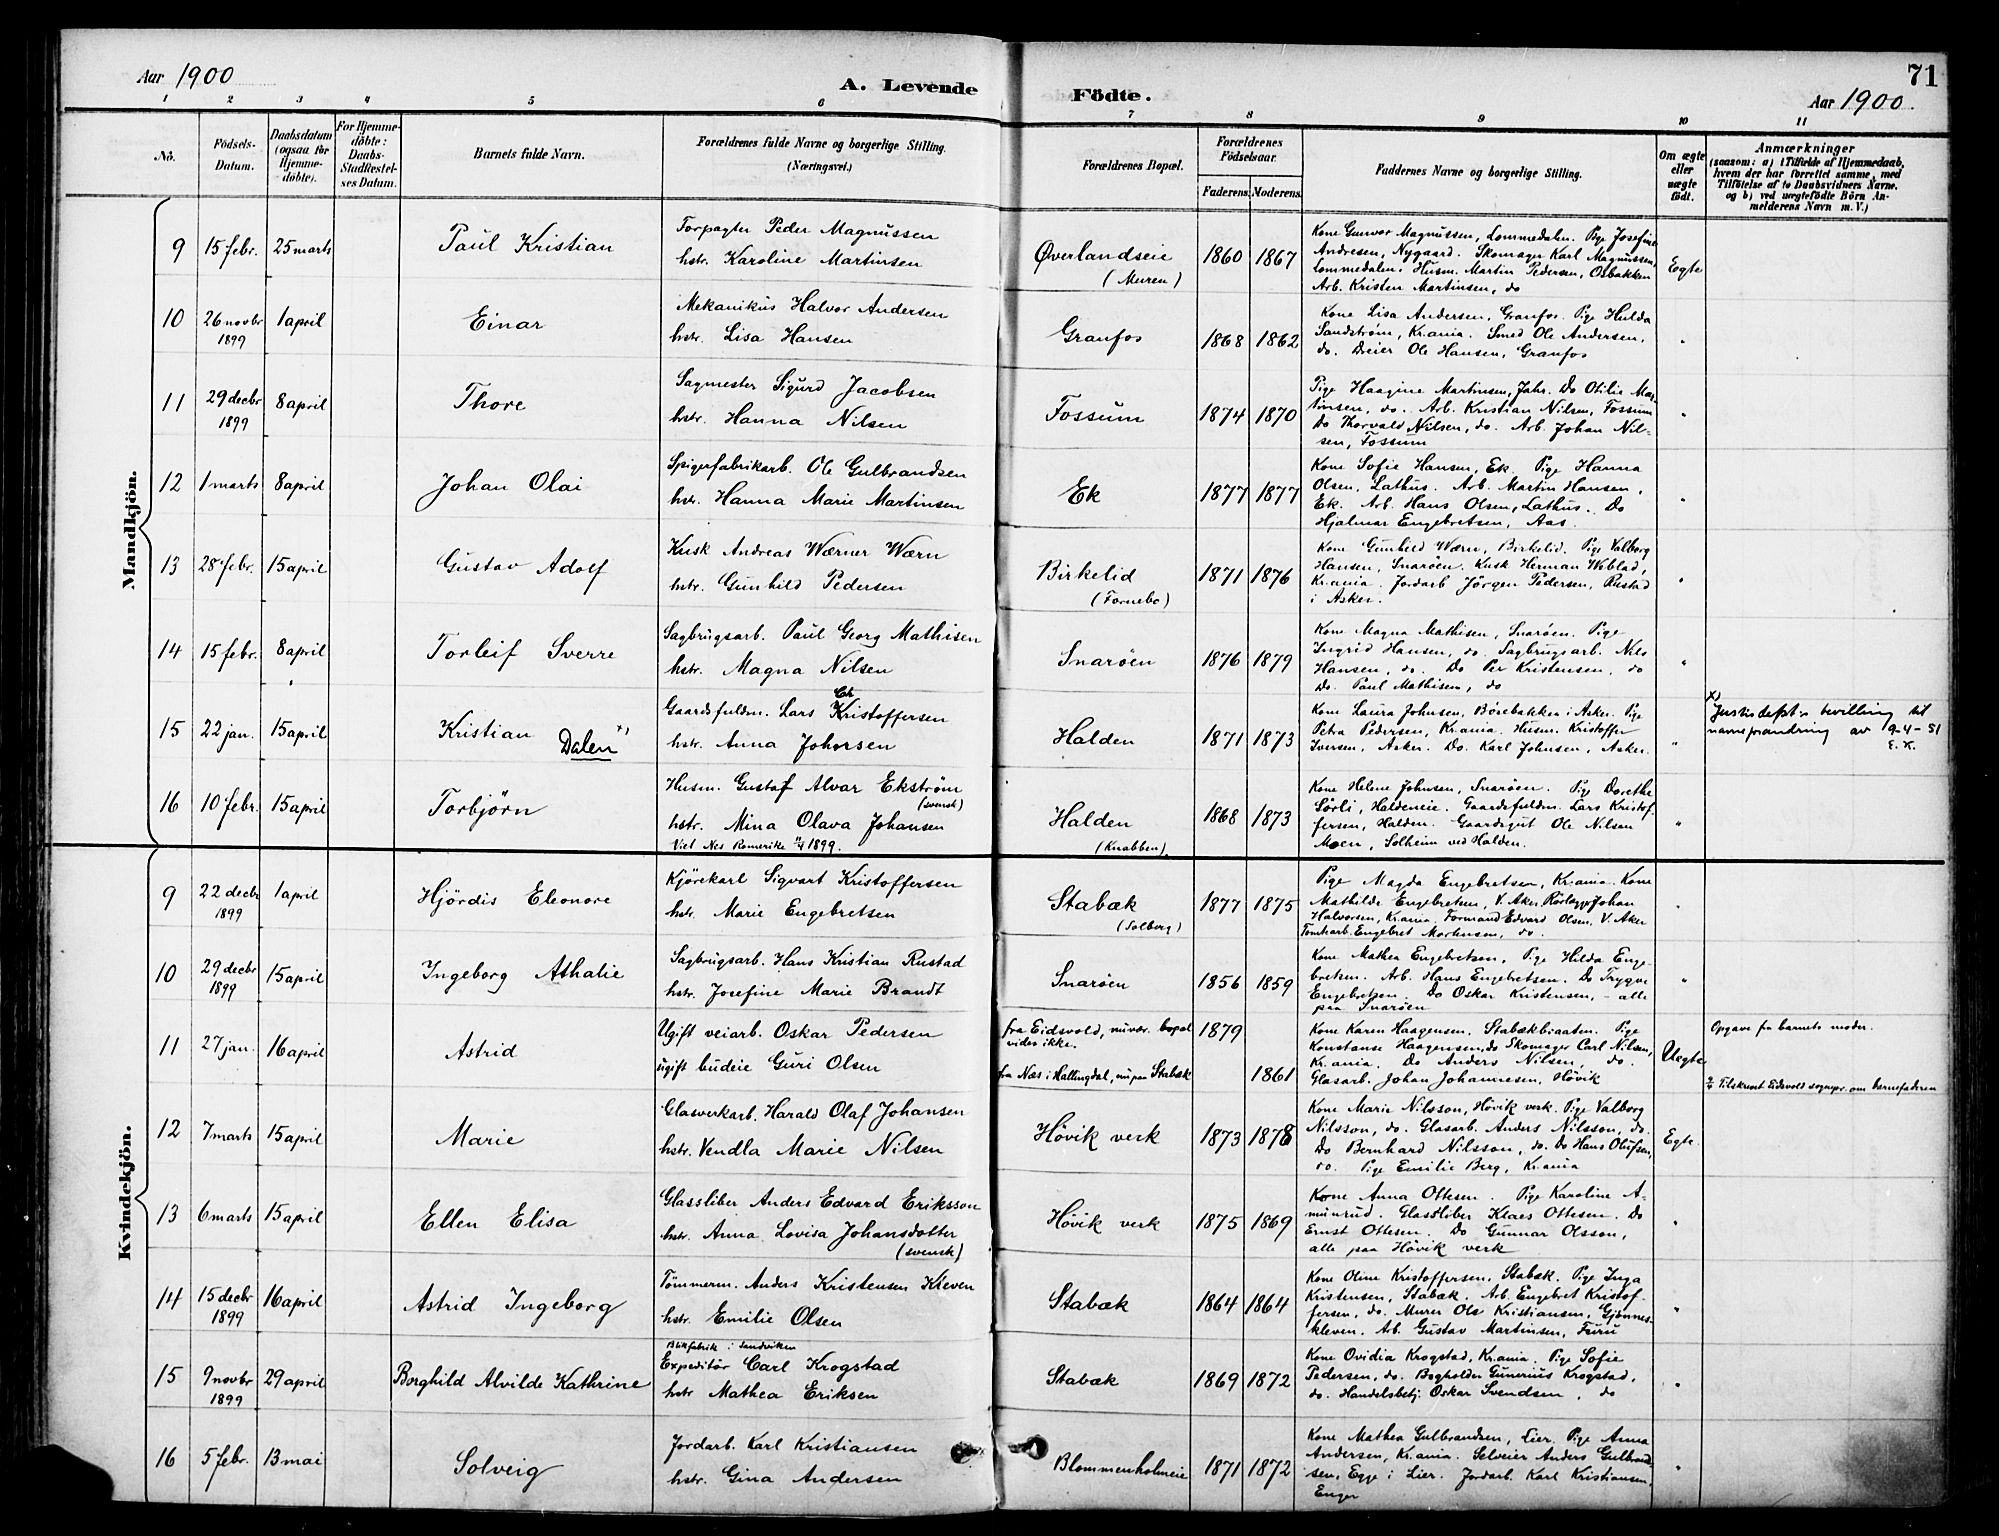 Aar 1900
A. Levende Födte.
71
Aar 1900.
1 2 3 4 5 6 7 8 9 10 11
No.
Födsels-Datum.
Daabsdatum (ogsaa for Hjemme-döbte).
For Hjemme-döbte: Daabs-Stadfæstel-ses Datum.
Barnets fulde Navn.
Forældrenes fulde Navne og borgerlige Stilling. (Næringsvei.)
Forældrenes Bopæl.
Forældrenes Födselsaar.
Faderens. Moderens.
Faddernes Navne og borgerlige Stilling.
Om ægte eller uægte födt.
Anmærkninger
(saasom: a) i Tilfælde af Hjemmedaab,
hvem der har forrettet samme, med
Tilföielse af to Daabsvidners Navne.
og b) ved uægtefödte Börn An-
melderens Navn m. V.)
Mandkjön.
9 15 febr. 25 marts Paul Kristian
Forpagter Peder Magnussen
hstr. Karoline Martinsen
Øverlandseie
(Muren)
1860 1867
Kone Gunvor Magnussen, Lommedalen. Pige Josefine
Andresen, Nygaard. Skomager Karl Magnussen,
Lommedalen. Husm. Martin Pedersen, Osbakken
Arb. Kristen Martinsen, do
Eegte
10 26 novbr 1899 1 april Einar
Mekanikus Halvor Andersen
hstr. Lisa Hansen
Granfos
1868 1862
Kone Lisa Andersen, Granfos. Pige Hulda
Sandstrøm, Kr.ania. Smed Ole Andersen,
do. Dreier Ole Hansen, Granfos
"
11 29 decbr 1899 8 april Thore
Sagmester Sigurd Jacobsen
hstr. Hanna Nilsen
Fossum
1874 1870
Pige Haagine Martinsen, Jahr. Do Otilie Mar-
tinsen, do. Arb. Kristian Nilsen, Fossum
Do Thorvald Nilsen, do. Arb. Johan Nil-
sen, Fossum
"
12 1 marts 8 april Johan Olai
Spigerfabrikarb. Ole Gulbrandsen
hstr. Hanna Marie Martinsen
Ek
1877 1877
Kone Sofie Hansen, Ek. Pige Hanna
Olsen, Lathus. Arb. Martin Hansen,
Ek. Arb. Hans Olsen, Lathus. Do
Hjalmar Engebretsen, Aas.
"
13 28 febr. 15 april Gustav Adolf
Kusk Andreas Wærner Wærn
hstr. Gunhild Pedersen
Birkelid
(Fornebo)
1871 1876
Kone Gunhild Wærn, Birkelid. Pige Valborg
Hansen, Snarøen. Kusk Herman Weblad,
Kr.ania. Jordarb Jörgen Pedersen, Rustad
i Asker.
"
14 15 febr. 8 april Torleif Sverre
Sagbrugsarb. Paul Georg Mathisen
hstr. Magna Nilsen
Snarøen
1876 1879
Kone Magna Mathisen, Snarøen. Pige
Ingrid Hansen, do. Sagbrugsarb. Nils
Hansen, do. Do Per Kristensen, do
Do. Paul Mathisen, do
"
15 22 jan. 15 april Kristian Dalen x)
Gaardsfuldm. Lars Kristoffersen
Ch
hstr. Anna Johnsen
Halden
1871 1873
Kone Laura Johnsen, Börebakken i Asker. Pige
Petra Pedersen, Kr.ania. Husm. Kristoffer
Iversen, Asker. Do. Karl Johnsen, Asker.
"
x) Justisdepts bevilling til
navneforandring av 9-4-51
16 10 febr. 15 april Torbjörn
Husm. Gustaf Alvar Ekström
(svensk)
hstr. Mina Olava Johansen
Viet Nes Romerike 1899.
Halden
(Knabben)
1868 1873
Kone Helene Johnsen, Snarøen. Pige Dorethe
Sörli, Haldeneie. Gaardsfuldm. Lars Kristof-
fersen, Halden. Gaardsgut Ole Nilsen
Moen, Solheim ved Halden.
"
Kvindekjön.
9 22 decbr 1899 1 april Hjördis Eleonore
Kjörekarl Sigvart Kristoffersen
hstr. Marie Engebretsen
Stabæk
(Solberg)
1877 1875
Pige Magda Engebretsen, Kr.ania. Kone
Mathilde Engebretsen, V. Aker. Rörlægg. Johan
Halvorsen, Kr.ania. Formand Edvard Olsen, V. Aker
Tomtearb. Engebret Mortensen, do.
"
10 29 decbr 1899 15 april Ingeborg Athalie
Sagbrugsarb. Hans Kristian Rustad
hstr. Josefine Marie Brandt
Snarøen
1856 1859
Kone Mathea Engebretsen, Pige Hilda Enge-
bretsen. Arb. Hans Engebretsen. Do Trygve
Engebretsen. Do Oskar Kristensen, - alle
paa Snarøen
"
11 27 jan. 16 april Astrid
Ugift veiarb. Oskar Pedersen
ugift budeie Guri Olsen
fra Eidsvold, nuvær. bopæl
vides ikke.
fra Næs i Hallingdal, nu paa Stabæk
1879
1861
Kone Karen Haagensen, Stabækbraaten. Pige
Konstanse Haagensen, do Skomager Carl Nilsen,
Kr.ania. Do Anders Nilsen, do.
Glasarb. Johan Johannesen, Hövik
Uegte
Opgave fra barnets moder.
Tilskrevet Eidsvold sognepr. om barnefaderen
12 7 marts 15 april Marie
Glasverkarb. Harald Olaf Johansen
hstr. Vendla Marie Nilsen
Hövik verk
1873 1878
Kone Marie Nilsson, Hövik verk. Pige Valborg
Nilsson, do. Glasarb. Anders Nilsson, do.
Do Bernhard Nilsson, do. Do Hans Olufsen,
do. Pige Emilie Berg, Kr.ania
Egte.
13 6 marts 15 april Ellen Elisa
Glassliber Anders Edvard Eriksson
hstr. Anna Lovisa Johansdotter
(svensk)
Hövik verk
1875 1869
Kone Anna Ottesen. Pige Karoline A-
munrud. Glassliber Klaes Ottesen. Do
Ernst Ottesen. Do Gunnar Olsson,
alle paa Hövik verk
"
14 15 decbr 1899 16 april Astrid Ingeborg
Tömmerm. Anders Kristensen Kleven
hstr. Emilie Olsen
Stabæk
1864 1864
Kone Oline Kristoffersen, Stabæk. Pige Inga
Kristensen, Stabæk. Arb. Engebret Kristof-
fersen, do. Murer Ole Kristiansen, Gjönnes-
kleven. Arb. Gustav Martinsen, Furu
"
15 9 novbr 1899 29 april Borghild Alvilde Kathrine
Blikfabrik i Sandviken
Expeditör Carl Krogstad
hstr Mathea Eriksen
Stabæk
1869 1872
Kone Ovidia Krogstad, Kr.ania. Pige Sofie
Pedersen, do. Bogholder Gunerius Krogstad,
do. Handelsbetj. Oskar Svendsen, do
"
16 5 febr. 13 mai Solveig
Jordarb. Karl Kristiansen
hstr. Gina Andersen
Blommenholmeie
1871 1872
Kone Mathea Gulbrandsen, Lier. Pige Anna
Andersen, Kr.ania. Selveier Anders Gulbrand-
sen, Egge i Lier. Jordarb. Karl Kristiansen,
Enger
"